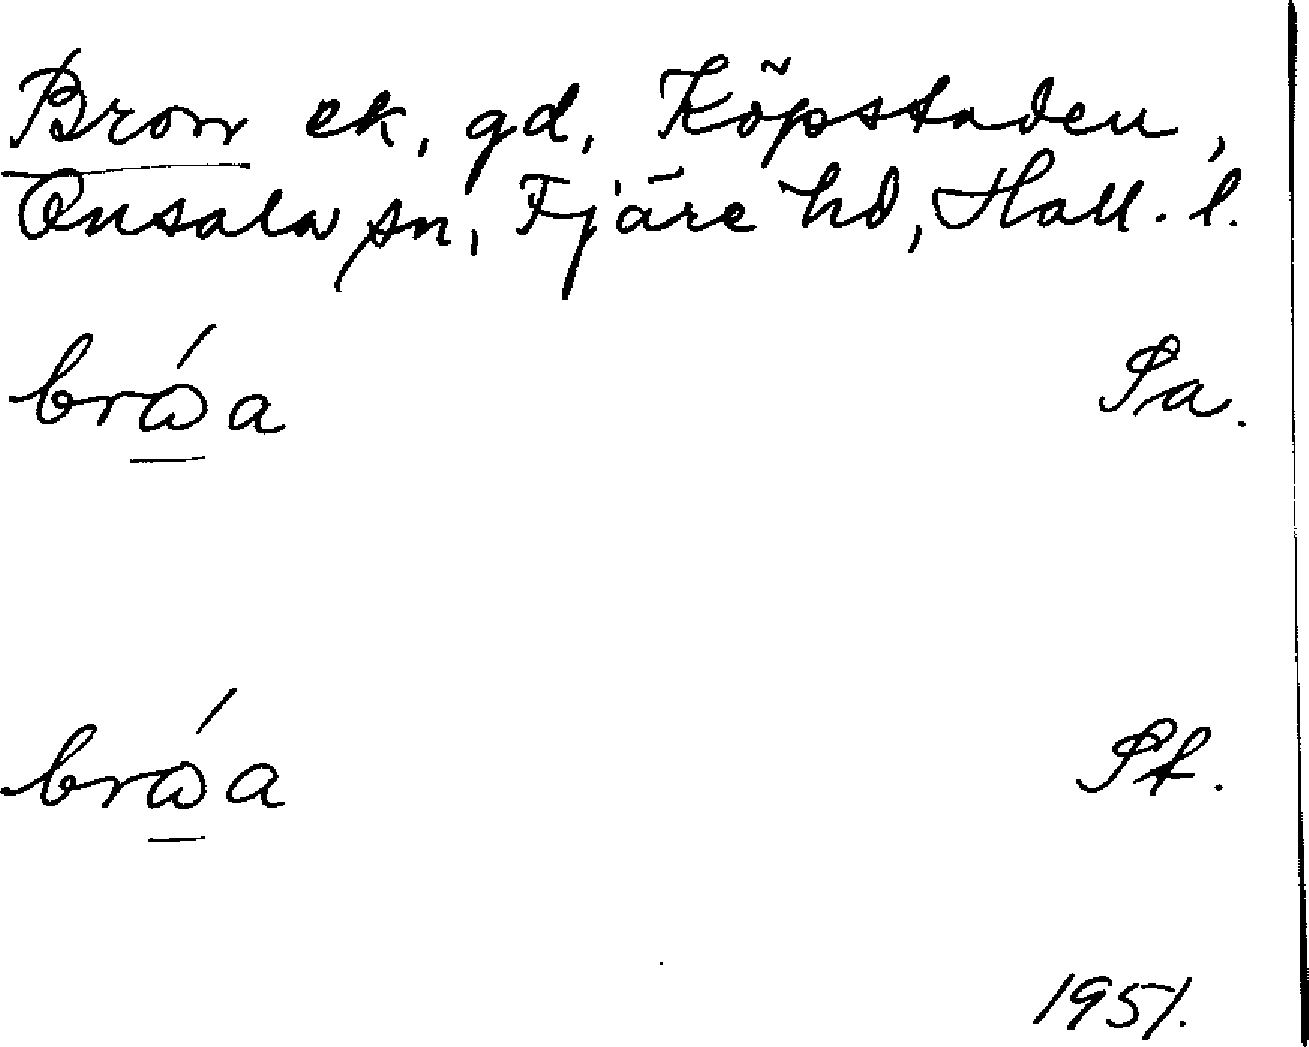 Broa ek, gd, Köpstaden,
Onsala sn, Fjäre hd, Hall. l.
brώa Sa.
brώa St.
1951.